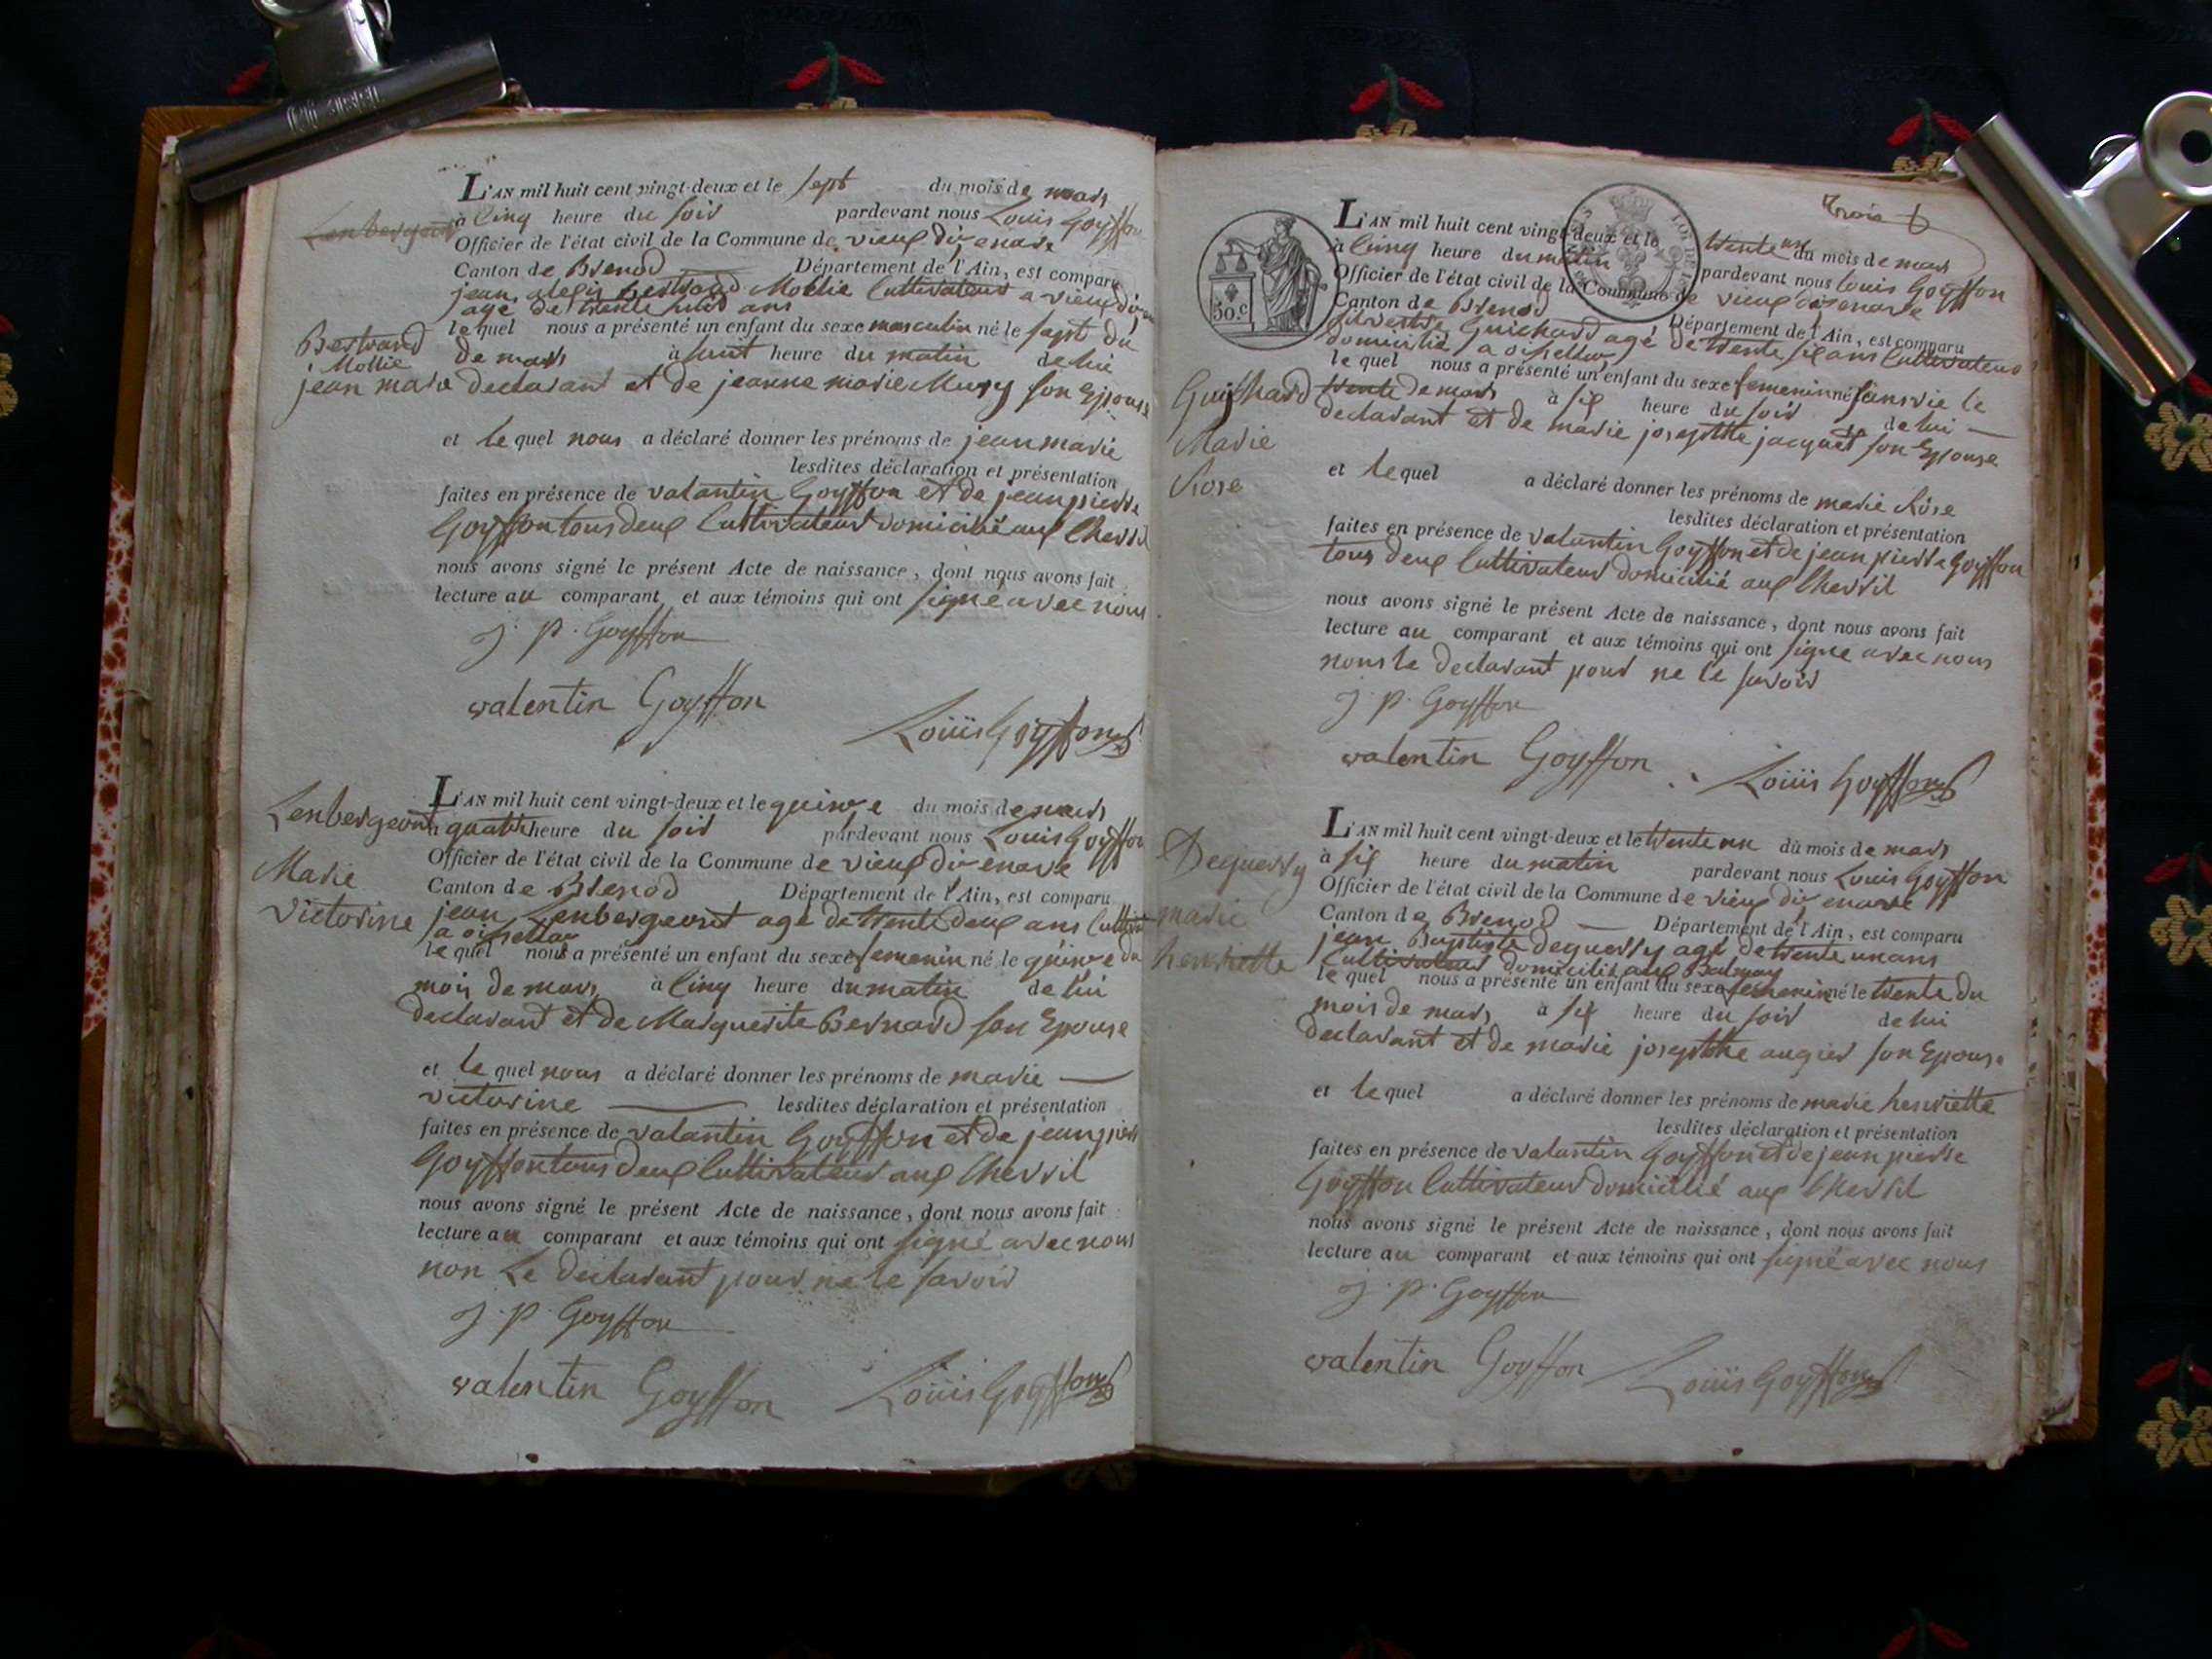 L'AN mil huit cent vingt-deux et le sept du mois de mars
à cinq heure du soir pardevant nous Louis Goyffon
Officier de l'état civil de la Commune de vieux dizenave
Canton de Brenod Département de l'Ain, est comparu
jean bertrand Mollie cultivateur a vieux
agé de trente huit ans
le quel nous a présenté un enfant du sexe masculin né le sept du
Bertrand
Mollie
jean marie
de mars à huit heure du matin de lui
declarant et de jeanne marie Mury son Epouse
et le quel nous a déclaré donner les prénoms de jean marie
lesdites déclaration et présentation
faites en présence de valantin Goyffon et de jean pierre
Goyffon tous deux cultivateur domicilié aux Chevril
nous avons signé le présent Acte de naissance, dont nous avons fait
lecture au comparant et aux témoins qui ont signé avec nous
J. P. Goyffon
valentin Goyffon
Louis Goyffon
Lenbergeont
Marie
Victorine
L'AN mil huit cent vingt-deux et le quinze du mois de mars
à quatre heure du soir pardevant nous Louis Goyffon
Officier de l'état civil de la Commune de vieux dizenave
Canton de Brenod Département de l'Ain, est comparu
jean Lenbergeont agé de trente deux ans
a oisellaz
le quel nous a présenté un enfant du sexe femenin né le quinze du
mois de mars à cinq heure du matin de lui
declarant et de Marguerite Bernard son Epouse
et le quel nous a déclaré donner les prénoms de marie
victorine lesdites déclaration et présentation
faites en présence de valantin Goyffon et de jean pierre
Goyffon tous deux cultivateur aux Chevril
nous avons signé le présent Acte de naissance, dont nous avons fait
lecture au comparant et aux témoins qui ont signé avec nous
non Le declarant pour ne le savoir
J. P. Goyffon
valentin Goyffon Louis Goyffon
Trois
50.c
L'AN mil huit cent vingt-deux et le trente un du mois de mars
à cinq heure du matin pardevant nous Louis Goyffon
Officier de l'état civil de la Commune de vieux dizenave
Canton de Brenod Département de l'Ain, est comparu
Silvestre Guichard agé de trente six ans cultivateur
domicilié a oisellaz
le quel nous a présenté un enfant du sexe femenin né sans vie le
Guichard
Marie
Rose
trente de mars à six heure du soir de lui
declarant et de marie josephte jacquet son Epouse
et le quel a déclaré donner les prénoms de marie Rose
lesdites déclaration et présentation
faites en présence de valantin Goyffon et de jean pierre Goyffon
tous deux cultivateur domicilié aux Chevril
nous avons signé le présent Acte de naissance, dont nous avons fait
lecture au comparant et aux témoins qui ont signé avec nous
nons le declarant pour ne le savoir
J. P. Goyffon
valentin Goyffon Louis Goyffon
Dequerry
marie
henriette
L'AN mil huit cent vingt-deux et le trente un du mois de mars
à six heure du matin pardevant nous Louis Goyffon
Officier de l'état civil de la Commune de vieux dizenave
Canton de Brenod Département de l'Ain, est comparu
jean Baptiste dequerry agé de trente un ans
cultivateur domicilié aux Balmay
le quel nous a présenté un enfant du sexe femenin né le trente du
mois de mars à six heure du soir de lui
declarant et de marie josephte augier son Epouse
et le quel a déclaré donner les prénoms de marie henriette
lesdites déclaration et présentation
faites en présence de valantin Goyffon et de jean pierre
Goyffon cultivateur domicilié aux Chevril
nous avons signé le présent Acte de naissance, dont nous avons fait
lecture au comparant et aux témoins qui ont signé avec nous
J. P. Goyffon
valentin Goyffon Louis Goyffon